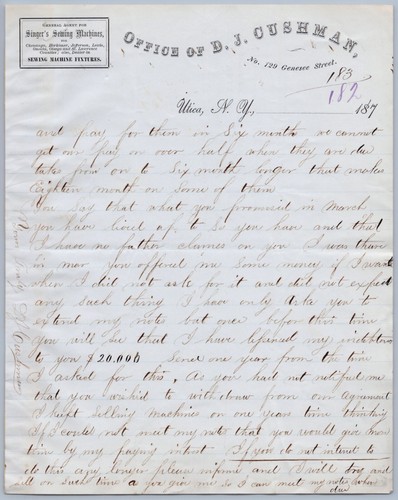 GENERAL AGENT FOR
Singer's Sewing Machines,
FOR
Chenango, Herkimer, Jefferson, Lewis,
Oneida, Otsego and St. Lawrence
Counties; also, Dealer in
SEWING MACHINE FIXTURES.
OFFICE OF D. J. CUSHMAN,
No. 129 Genesee Street.
183
182
Utica, N. Y., 187
and pay for them in Six month we cannot
get our pay on over half when they are due
takes from on to Six month longer that makes
Eighteen month on some of them
You say that what you promised in March
you have lived up to so you have and that
I have no father claimes on you I was there
in mar you offered me some money if I wanted
when I did not ask for it and did not expect
any such thing I have only Aske you to
extend my notes but once befor this time
you will see that I have
to you $20.000 Send one year from the time
I asked for this. As you had not notified me
that you wished to withdraw from our agreement
I kept selling machines on one years time thinking
If I could not meet my note that you would give me
time by my paying intrest If you do not intend to
do this any longer please informe and I will
sell on such time a you give me so I can meet my notes when
due
Cushman